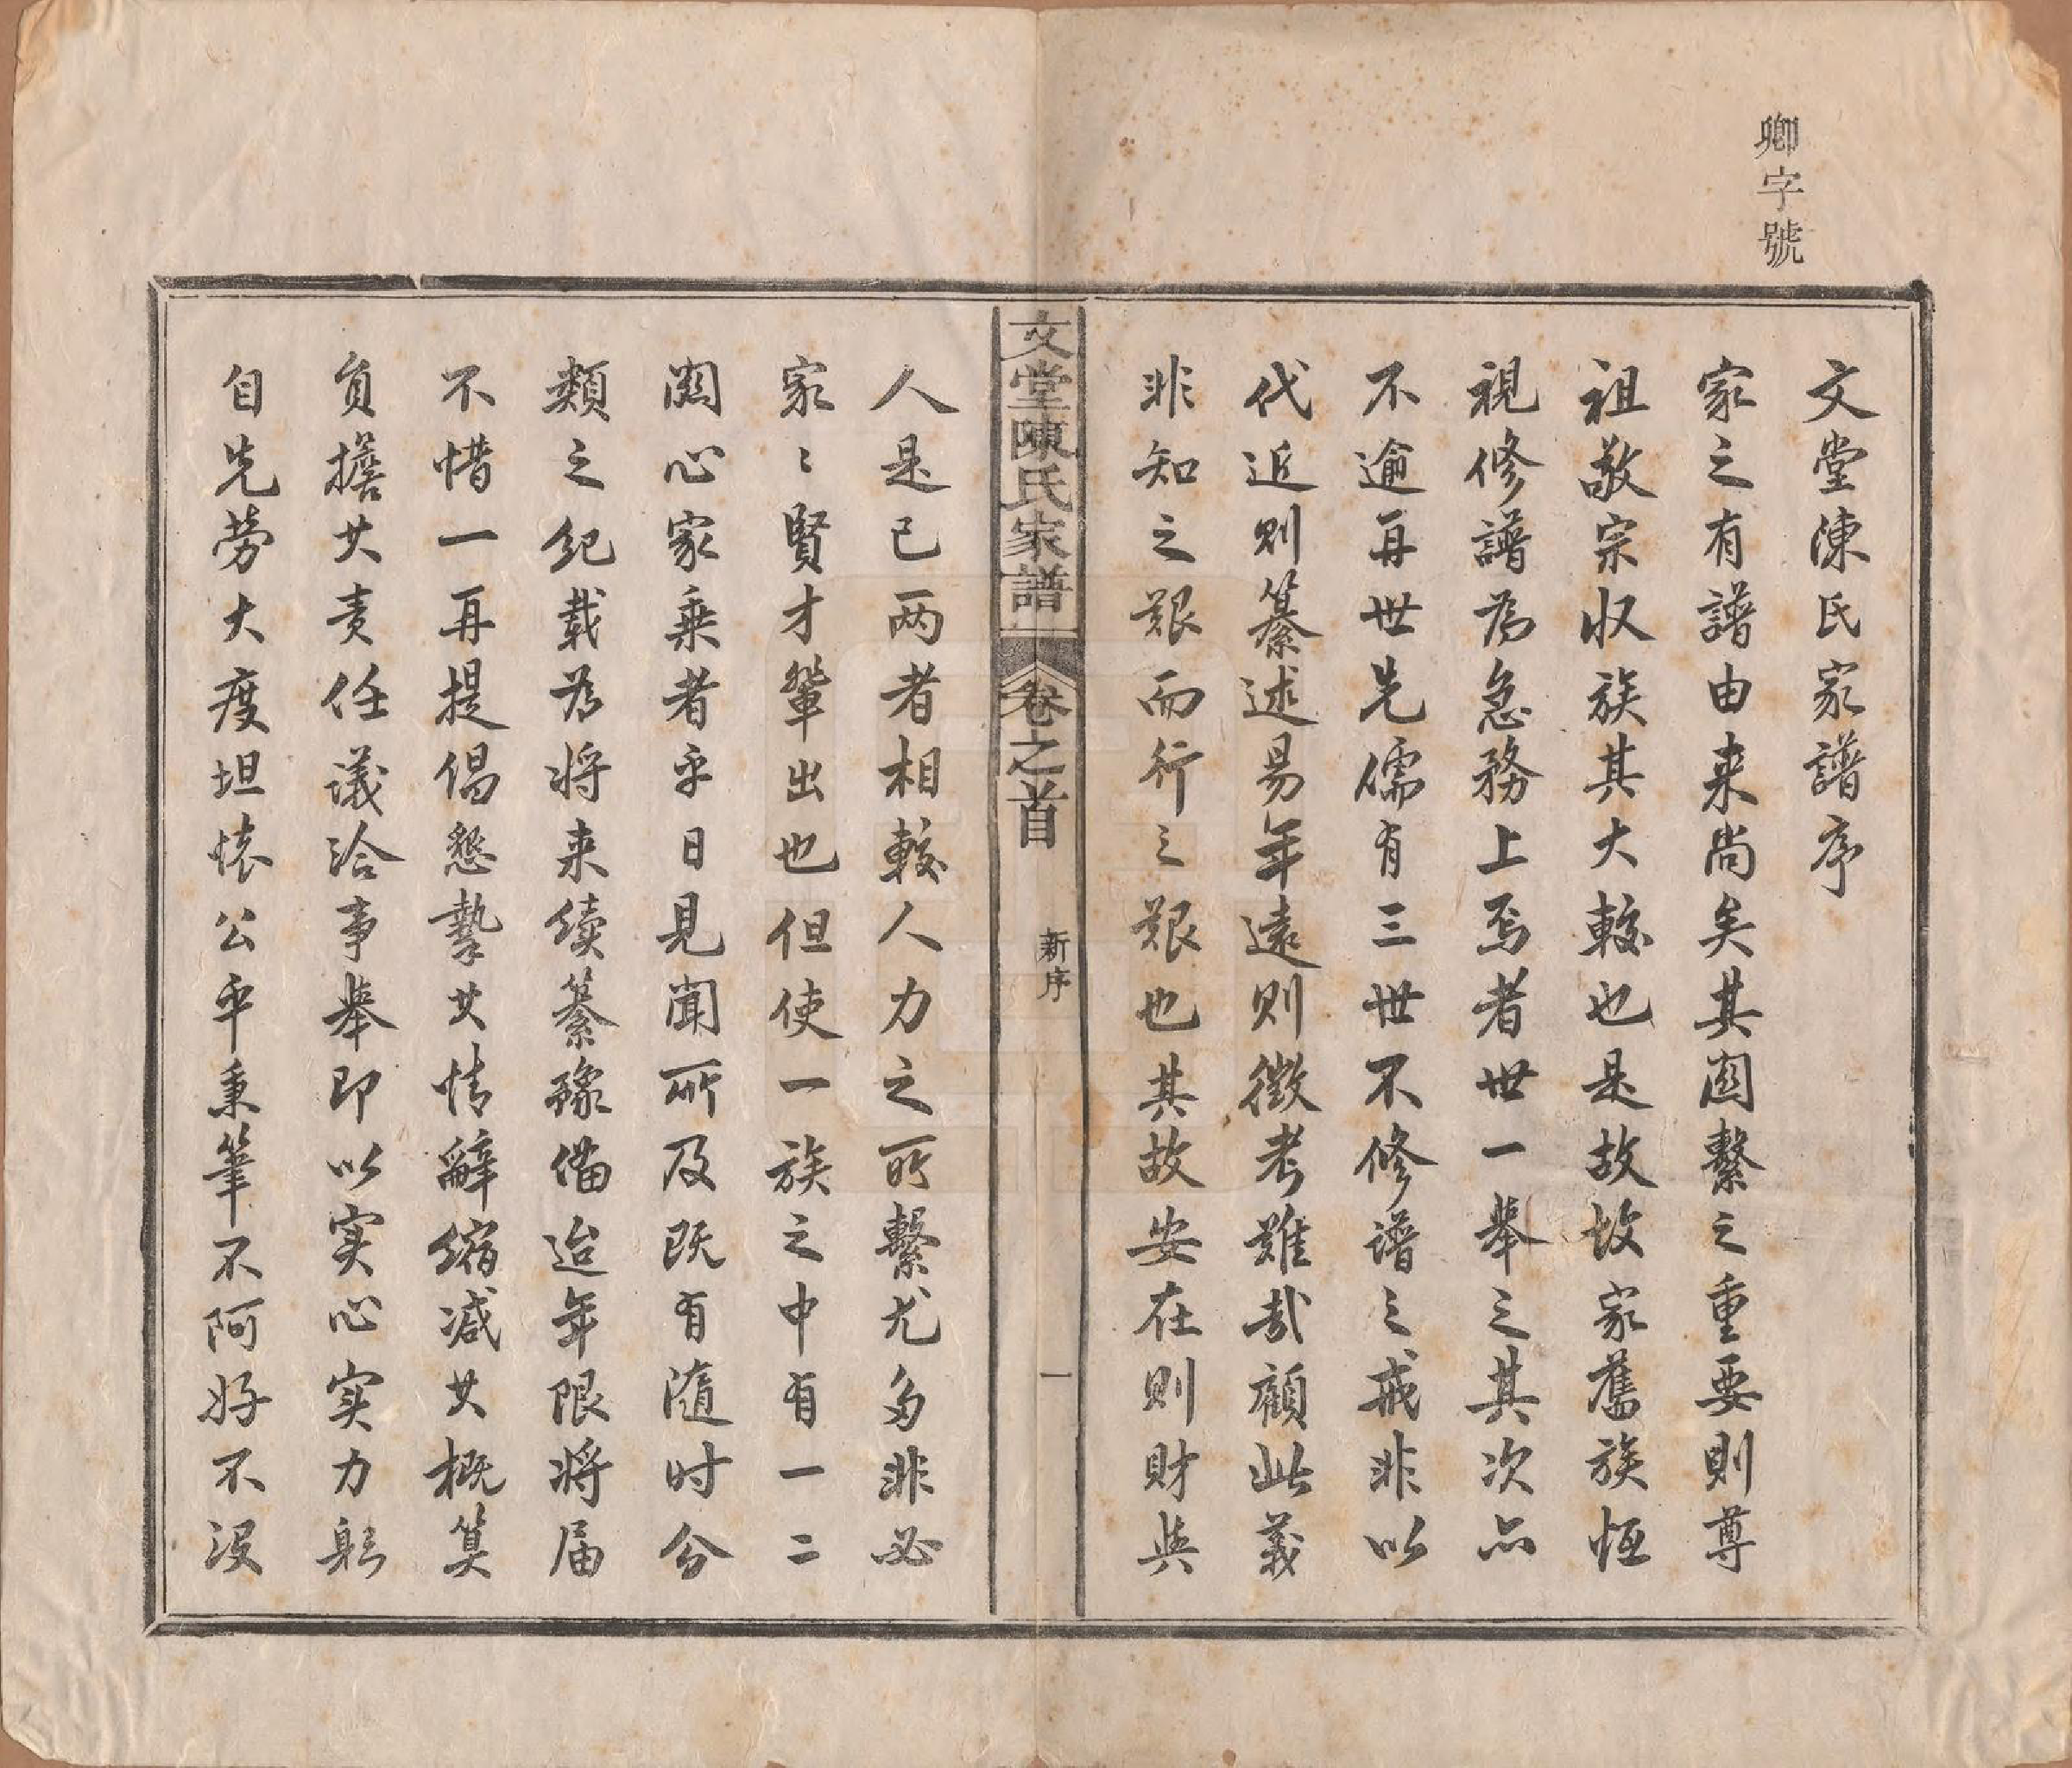 卿字號
文堂陳氏家譜序
家之有譜由来尚矣其関繫之重要則尊
祖敬宗収族其大較也是故故家舊族恒
視修譜為急務上焉者世一舉之其次亦
不逾再世先儒有三世不修譜之戒非以
代近則纂述易年遠則徵考難哉顧此義
非知之艱而行之艱也其故安在則財與
文堂陳氏家譜
卷之首
新序
一
人是已两者相較人力之所繫尤多非必
家〻賢才輩出也但使一族之中有一二
関心家乘者乎日見聞所及既有隨时分
類之紀載为将来續纂豫俻迨年限将届
不惜一再提倡懇摯其情辭縮减其概算
負擔其责任議洽事舉即以实心实力躬
自先劳大度坦懐公平秉筆不阿好不没